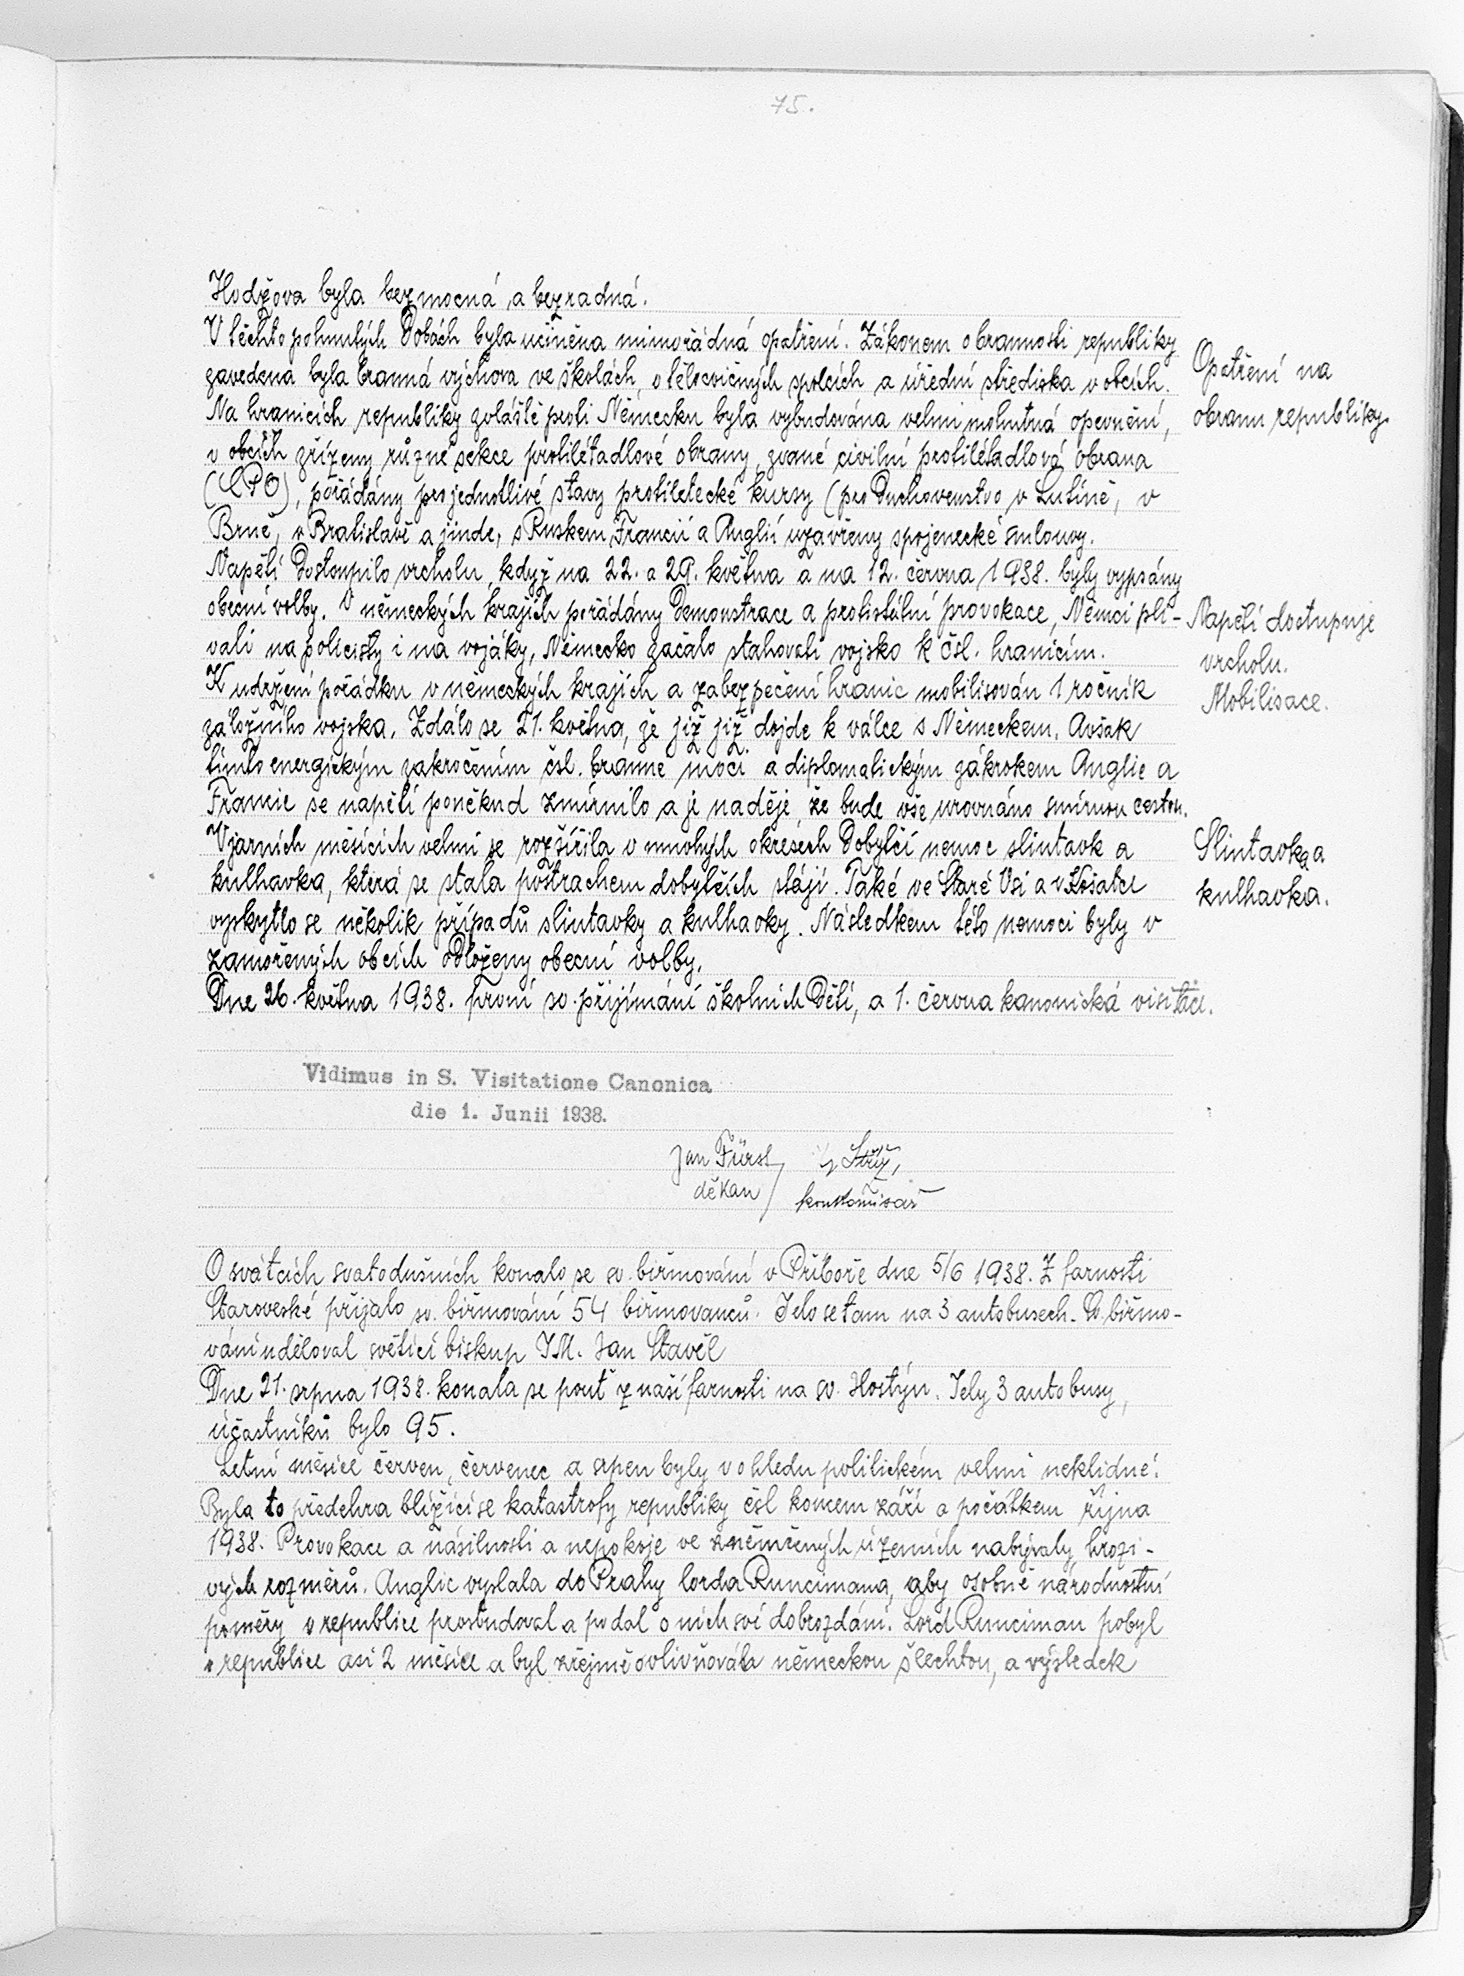 75.
Hodžova byla bezmocná, a bezradná.
V těchto pohnutých dobách byla učiněna mimořádná opatření. Zákonem o brannosti republiky
zavedena byla branná výchova ve školách, v tělocvičných spolcích a úřední střediska v obcích.
Opatření na
obranu republiky.
Na hranicích republiky zvláště proti Německu byla vybudována velmi mohutná opevnění,
v obcích zřízeny různé sekce protiletadlové obrany, zvané civilní protiletadlová obrana
(CPO), pořádány pro jednotlivé stavy protiletecké kursy (pro duchovenstvo v Lutíně, v
Brně, v Bratislavě a jinde, s Ruskem, Francií a Anglií uzavřeny spojenecké smlouvy.
Napětí dostoupilo vrcholu, když na 22. a 29. května a na 12. června 1938. byly vypsány
obecní volby. V německých krajích pořádány demonstrace a protistátní provokace, Němci pli-
vali na policisty i na vojáky, Německo začalo stahovati vojsko k čsl. hranicím.
Napětí dostupuje
vrcholu.
Mobilisace.
K udržení pořádku v německých krajích a zabezpečení hranic mobilisován 1 ročník
záložního vojska. Zdálo se 21. května, že již již dojde k válce s Německem. Avšak
tímto energickým zakročením čsl. branné moci a diplomatickým zákrokem Anglie a
Francie se napětí poněkud zmírnilo a je naděje, že bude vše urovnáno smírnou cestou.
V jarních měsících velmi se rozšířila v mnohých okresech dobytčí nemoc slintavk a
kulhavka, která se stala postrachem dobytčích stájí. Také ve Staré Vsi a v Košatce
Slintavka a
kulhavka.
vyskytlo se několik případů slintavky a kulhavky. Následkem této nemoci byly v
zamořených obcích odloženy obecní volby.
Dne 26. května 1938. první sv. přijímání školních dětí, a 1. června kanonická visitace.
Vidimus in S. Visitatione Canonica
die 1. Junii 1938.
Jan Fürst
děkan
O svátcích svatodušních konalo se sv. biřmování v Příboře dne 5/6 1938. Z farnosti
Staroveské přijalo sv. biřmování 54 biřmovanců. Jelo se tam na 3 autobusech. Sv. biřmo-
vání uděloval světící biskup JM. Jan Stavěl
Dne 21. srpna 1938. konala se pouť z naší farnosti na sv. Hostýn. Jely 3 autobusy,
účastníků bylo 95.
Letní měsíce červen, červenec a srpen byly v ohledu politickém velmi neklidné.
Byla to předehra blížící se katastrofy republiky čsl koncem září a počátkem října
1938. Provokace a násilnosti a nepokoje ve zněmčených územích nabývaly hrozi-
vých rozměrů. Anglie vyslala do Prahy lorda Runcimana, aby osobně národnostní
poměry v republice prostudoval a podal o nich své dobrozdání. Lord Runciman pobyl
v republice asi 2 měsíce a byl zřejmě ovlivňován německou šlechtou, a výsledek